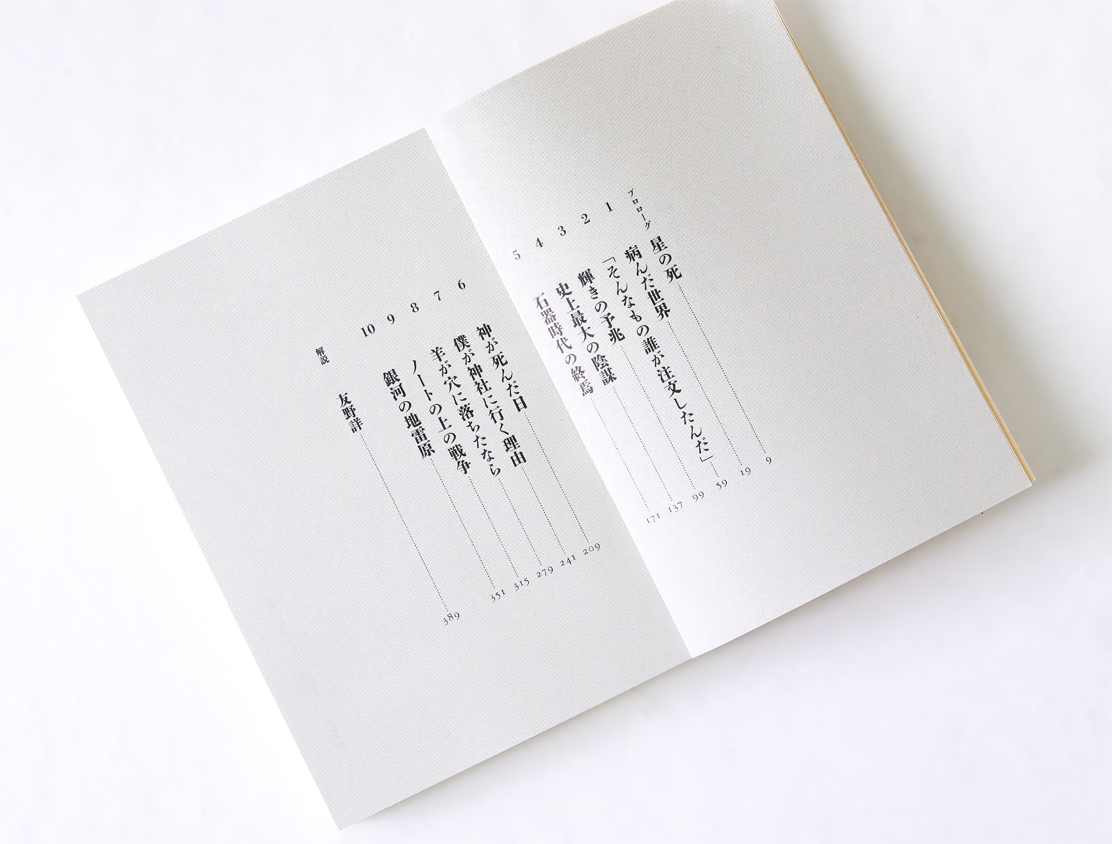 プロローグ 星の死 9
1 病んだ世界 19
2 「そんなもの誰が注文したんだ」 59
3 輝きの予兆 99
4 史上最大の陰謀 137
5 石器時代の終焉 171
6 神が死んだ日 209
7 僕が神社に行く理由 241
8 羊が穴に落ちたなら 279
9 ノートの上の戦争 315
10 銀河の地雷原 351
解説 友野詳 389